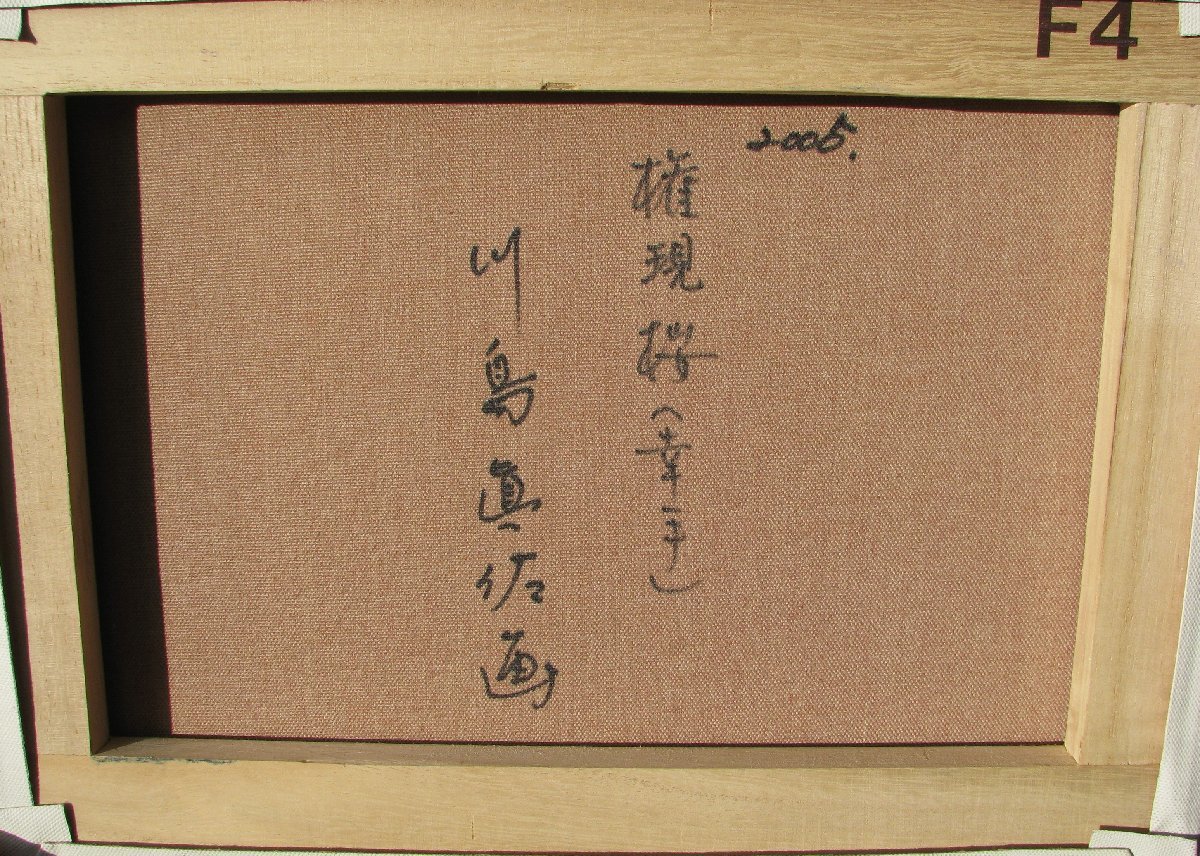 F4
2005.
権現桜(幸手)
川島眞佐画